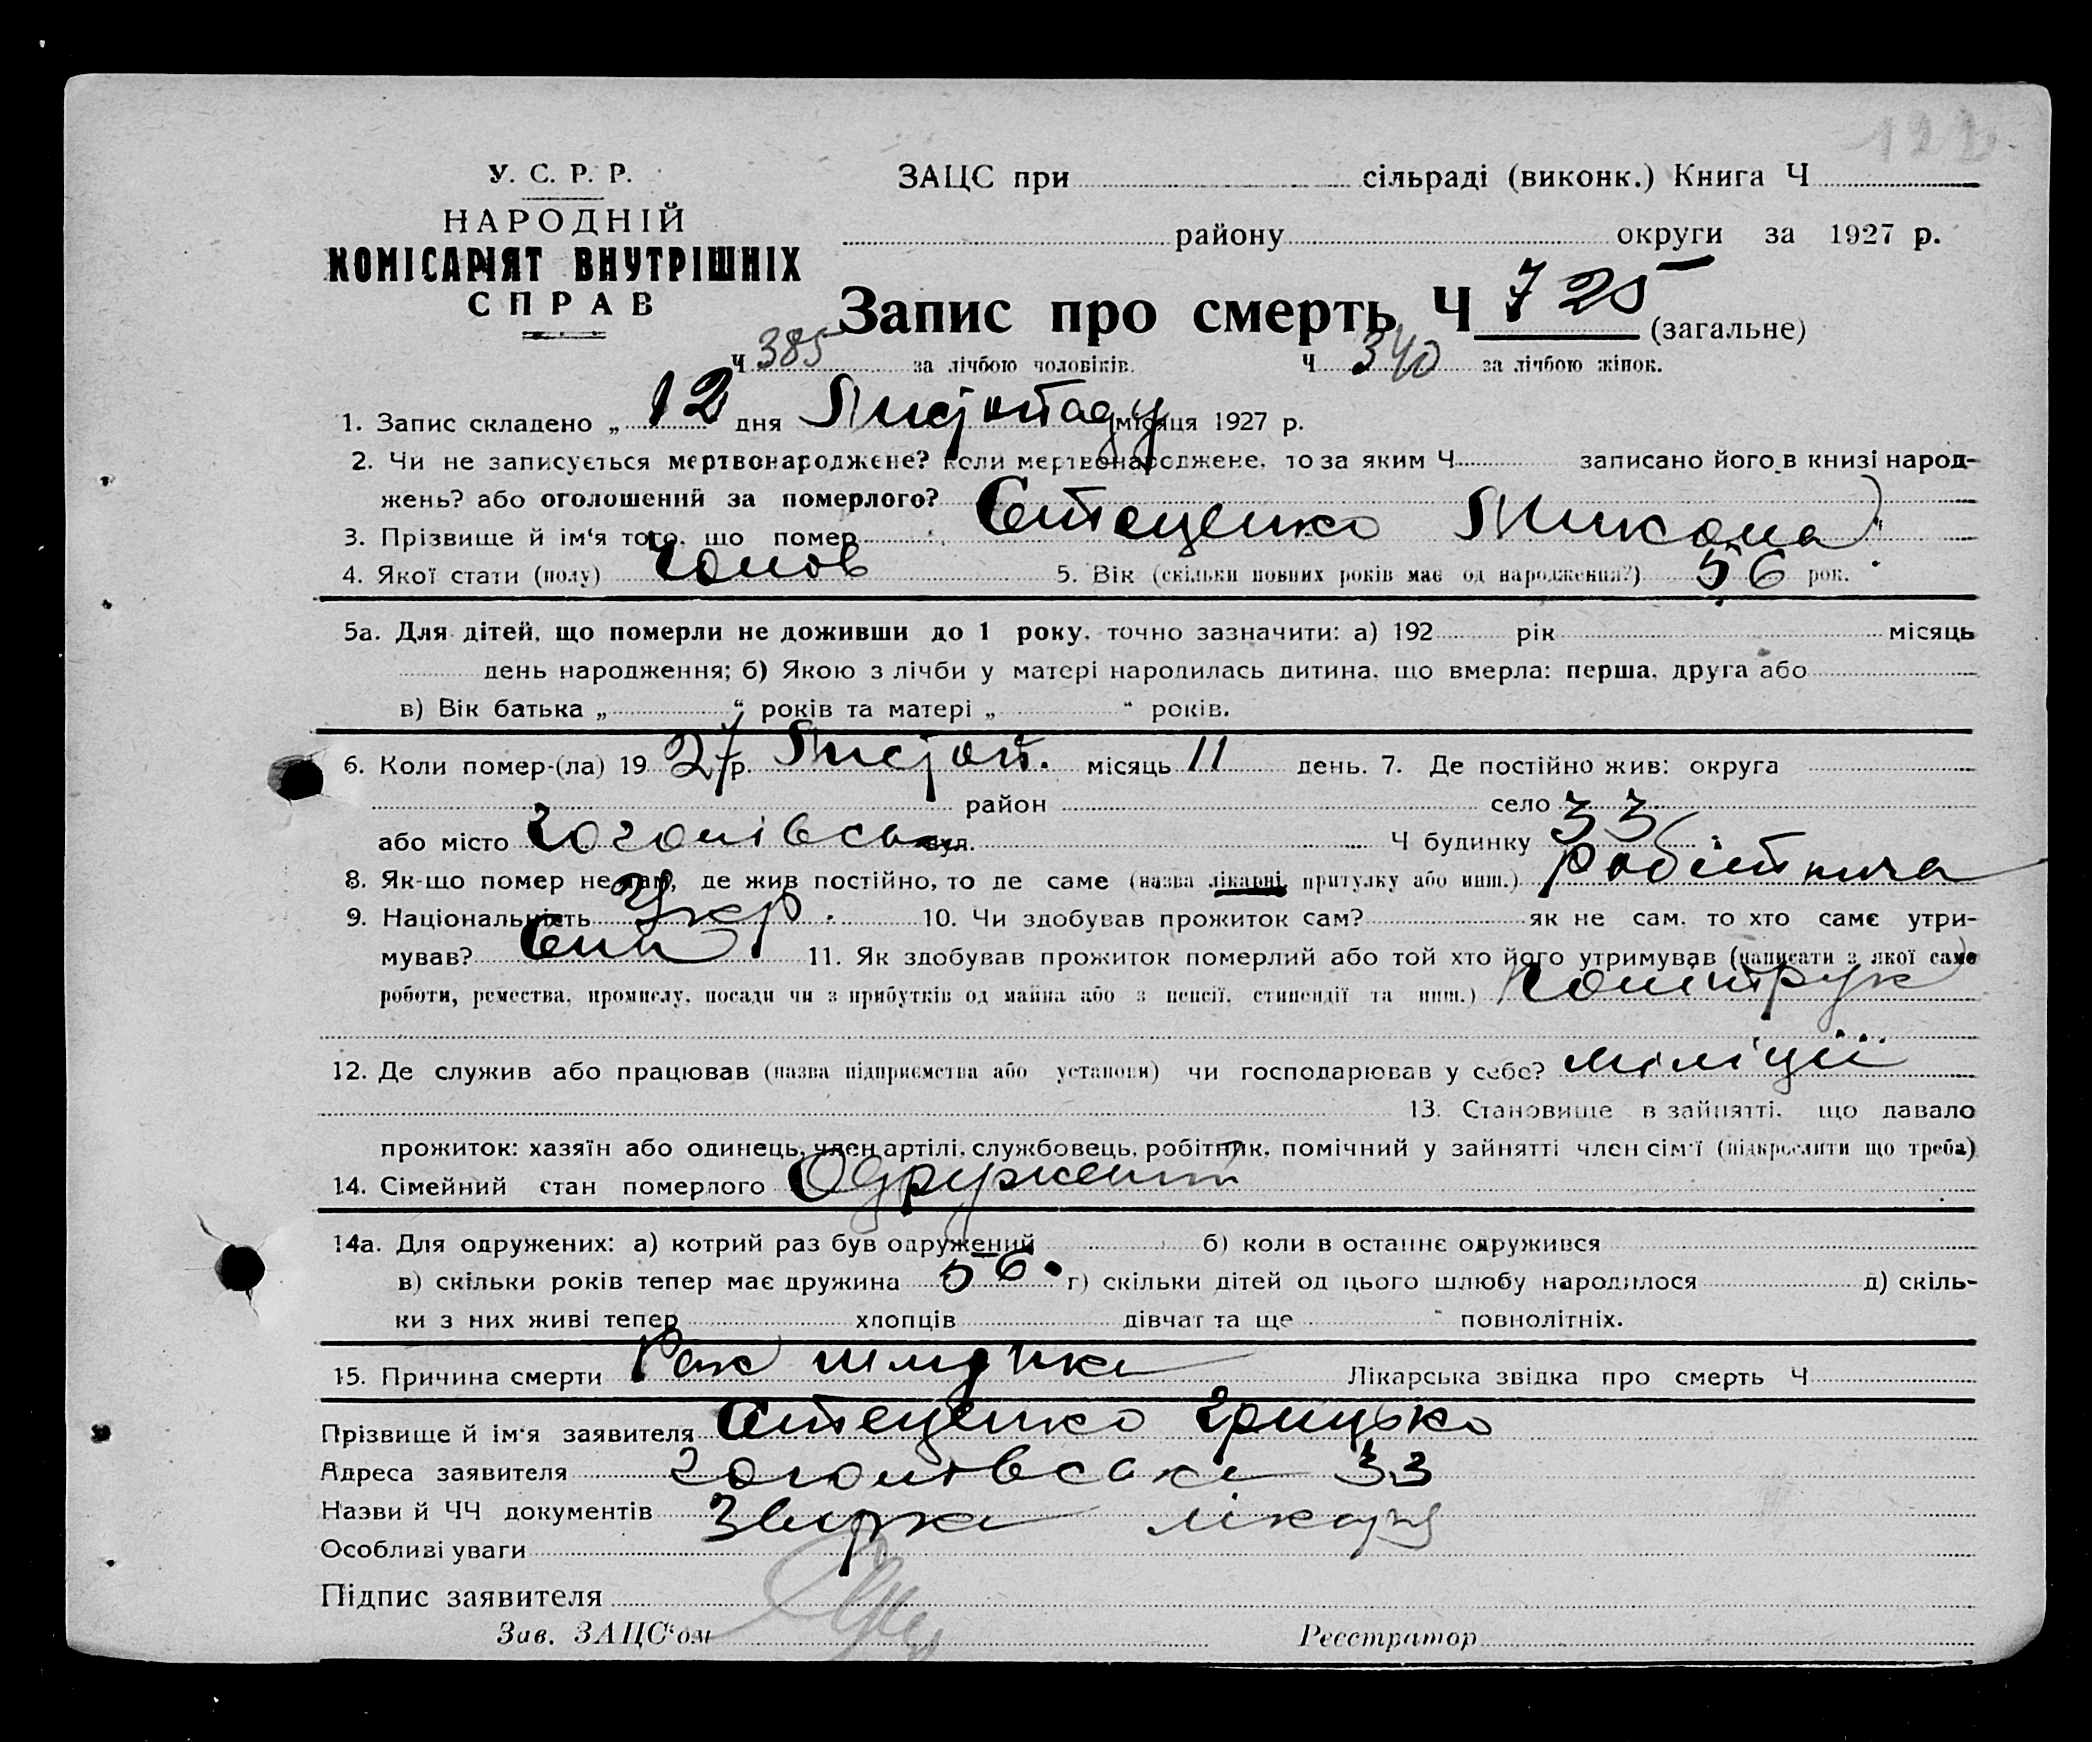 122
У. С. Р. Р.
НАРОДНІЙ
КОМІСАРІЯТ ВНУТРІШНІХ
СПРАВ
ЗАЦС при сільраді (виконк.) Книга Ч
району округи за 1927 р.
Запис про смерть Ч 725 (загальне)
Ч 385 за лічбою чоловіків. Ч 340 за лічбою жінок.
1. Запис складено „ 12 дня Листопаду місяця 1927 р.
2. Чи не записується мертвонароджене? Коли мертвонароджене, то за яким Ч записано його в книзі народ-
жень? або оголошений за померлого?
3. Прізвище й ім'я того, що помер Стеценко Микола
4. Якої стати (полу) Чолов 5. Вік (скільки повних років має од народження?) 56 рок.
5а. Для дітей, що померли не доживши до 1 року, точно зазначити: а) 192 рік місяць
день народження; б) Якою з лічби у матері народилась дитина, що вмерла: перша, друга або
в) Вік батька „ “ років та матері „ “ років.
6. Коли помер-(ла) 19 27 р. Листоп. місяць 11 день. 7. Де постійно жив: округа
район село
або місто Гоголівська вул. Ч будинку 33
8. Як-що помер не там, де жив постійно, то де саме (назва лікарні, притулку або инш.) робітнича
9. Національність Укр. 10. Чи здобував прожиток сам? як не сам, то хто саме утри-
мував? Син 11. Як здобував прожиток померлий або той хто його утримував (написати з якої саме
роботи, ремества, промислу, посади чи з прибутків од майна або з пенсії, стипендії та инш.)
12. Де служив або працював (назва підприємства або установи) чи господарював у себе? міліції
13. Становище в зайнятті, що давало
прожиток: хазяїн або одинець, член артілі, службовець, робітник, помічний у зайнятті член сім'ї (підкреслити що треба)
14. Сімейний стан померлого Одружений
14а. Для одружених: а) котрий раз був одружений б) коли в останнє одружився
в) скільки років тепер має дружина 56 г) скільки дітей од цього шлюбу народилося д) скіль-
ки з них живі тепер хлопців дівчат та ще повнолітніх.
15. Причина смерти Рак шлунка Лікарська звідка про смерть Ч
Прізвище й ім'я заявителя Стеценко Грицько
Адреса заявителя Гоголівська 33
Назви й ЧЧ документів лікаря
Особливі уваги
Підпис заявителя
Зав. ЗАЦС'ом Реєстратор